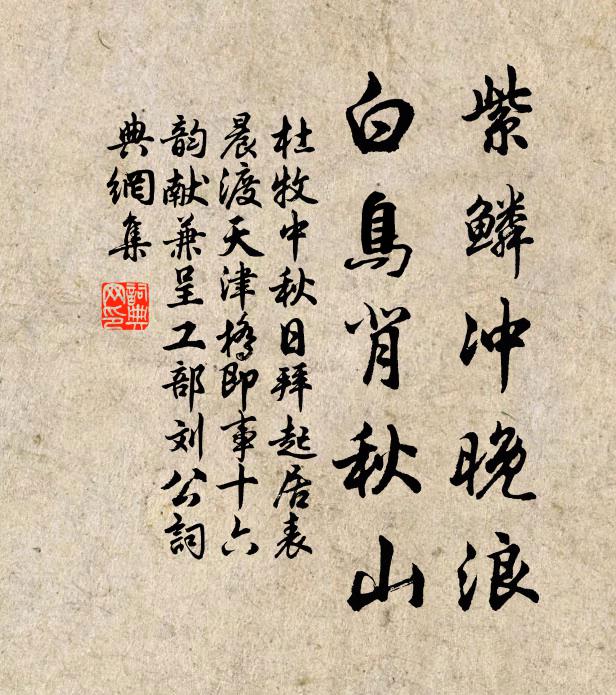 紫鳞冲晚浪
白鸟背秋山
杜牧中秋日拜起居表
晨渡天津桥即事十六
韵献兼呈工部刘公词
典网集
詞典网印